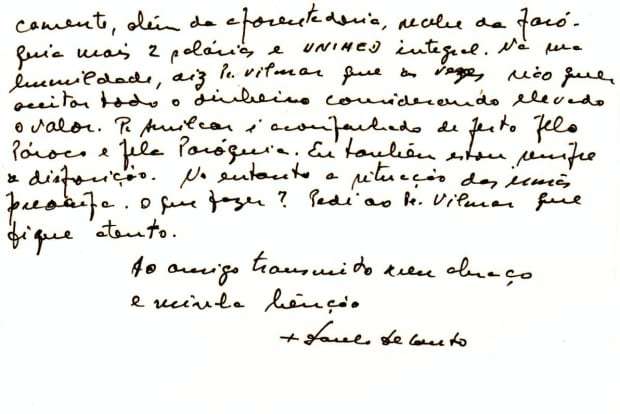 camente, além da aposentadoria, recebe da Paró-
quia mais 2 salários e UNIMED integral. Na sua
humildade, diz Pe. Vilmar que às vezes não quer
aceitar todo o dinheiro considerando elevado
o valor. Pe Amilcar é acompanhado de perto pelo
Pároco e pela Paróquia. Eu também estou sempre
a disposição. No entanto a situação das irmãs
preocupa. O que fazer? Pedi ao Pe. Vilmar que
fique atento.
Ao amigo transmito meu abraço
e minha bênção
+ Paulo De Conto